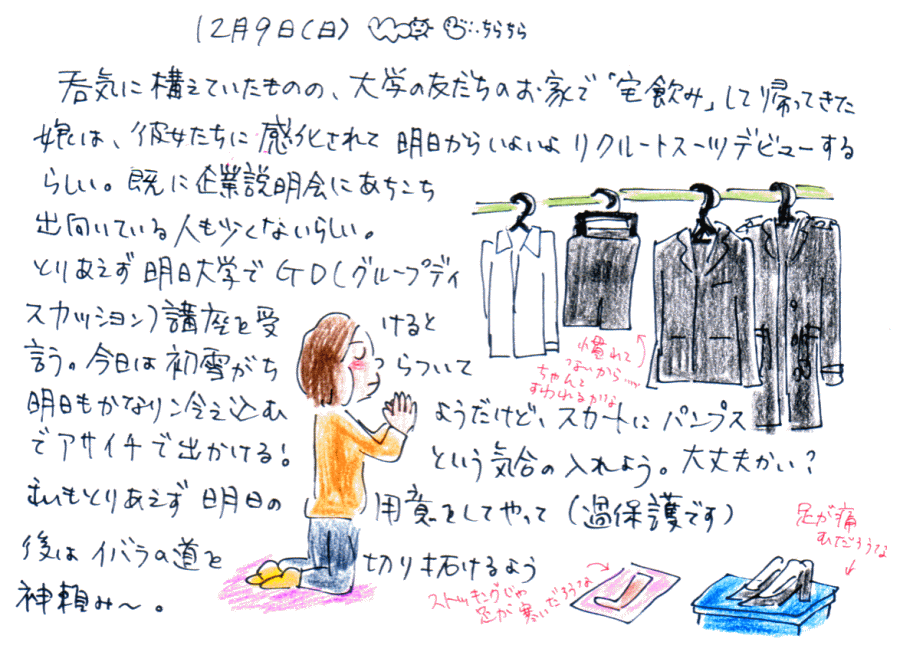 12月9日(日) ちらちら
呑気に構えていたものの、大学の友だちのお家で「宅飲み」して帰ってきた
娘は、彼女たちに感化されて明日からいよいよリクルートスーツデビューする
らしい。既に企業説明会にあちこち
出向いている人も少くないらしい。
とりあえず明日大学でGD(グループディ
スカッション)講座を受けると
言う。今日は初雪がちらついて
明日もかなり冷え込むようだけど、スカートにパンプス
でアサイチで出かける!という気合の入れよう。大丈夫かい?
私もとりあえず明日の用意をしてやって(過保護です)
後はイバラの道を切り拓けるよう
神頼み〜。
慣れて
ないから…
ちゃんと
すわれるかな
ストッキングじゃ
足が寒いだろうな
足が痛
むだろうな